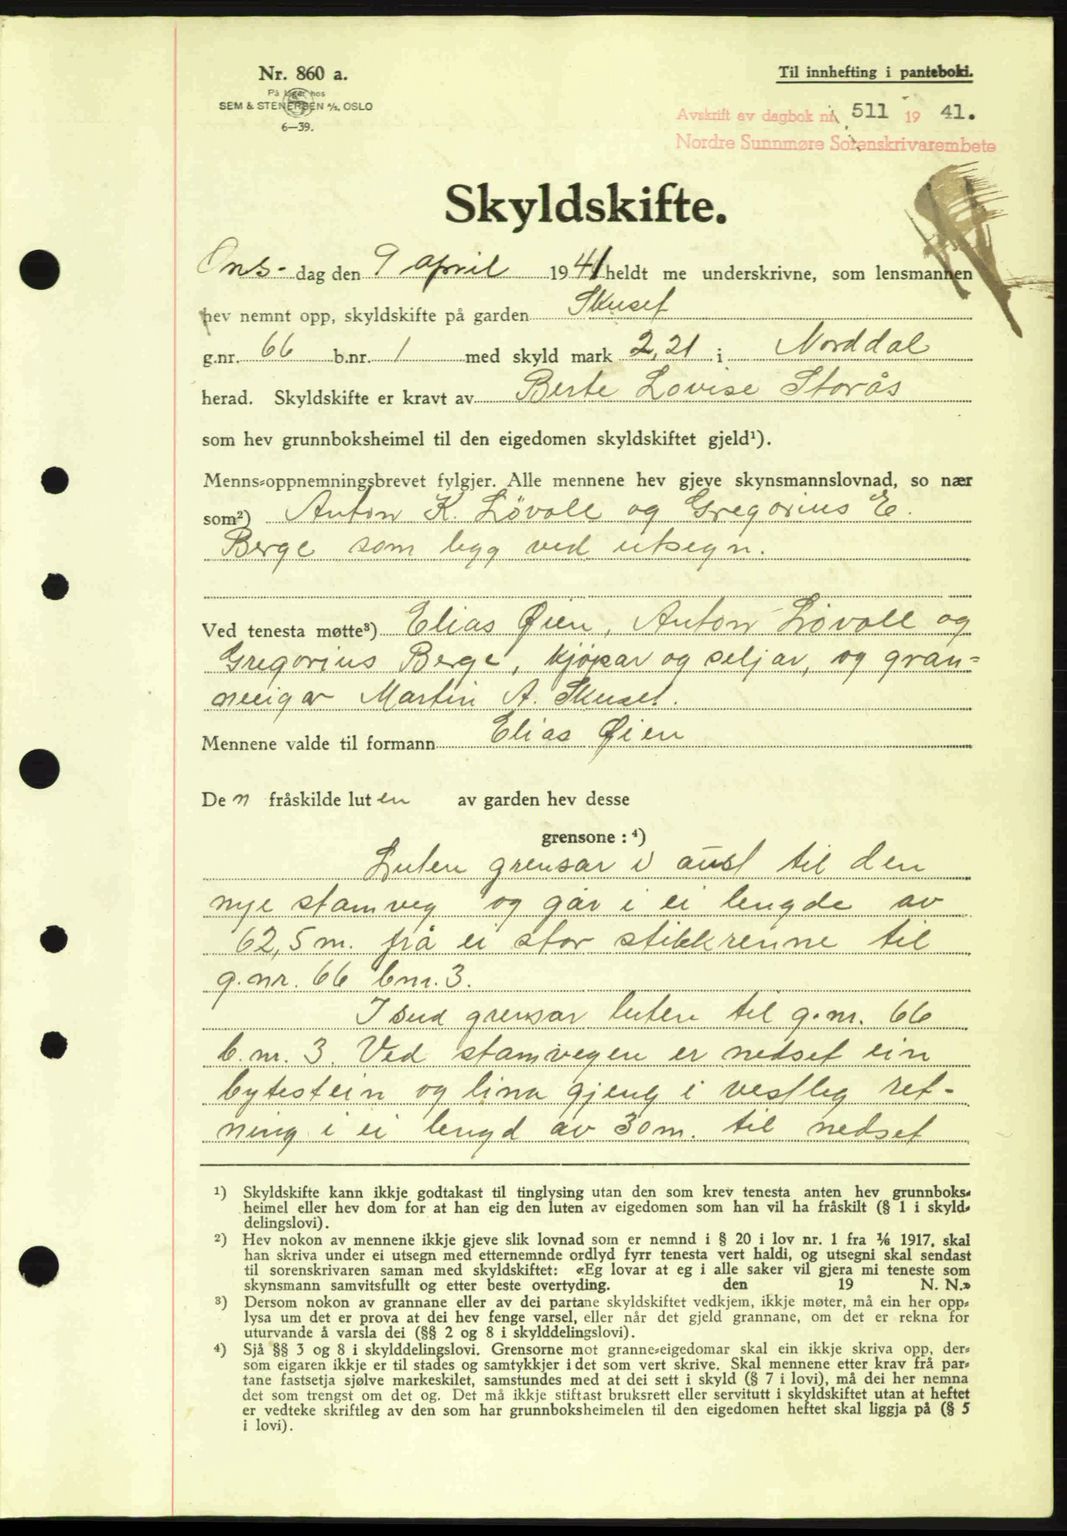 Nr. 860 a.
På lager hos
SEM & STENERSEN A/S, OSLO
6—39.
Til innhefting i panteboki.
Avskrift av dagbok nr. 511 19 41.
Nordre Sunnmøre Sorenskrivarembete
Skyldskifte.
Ons- dag den 9 april 1941 heldt me underskrivne, som lensmannen
hev nemnt opp, skyldskifte på garden Skuset
g.nr. 66 b.nr. 1 med skyld mark 2,21 i Norddal
herad. Skyldskifte er kravt av Berte Lovise Storås
som hev grunnboksheimel til den eigedomen skyldskiftet gjeld¹).
Menns-oppnemningsbrevet fylgjer. Alle mennene hev gjeve skynsmannslovnad, so nær
som²) Anton K. Løvoll og Gregorius E.
Berge som legg ved utsegn.
Ved tenesta møtte³) Elias Øien, Anton Løvoll og
Gregorius Berge, kjøpar og seljar, og gran-
neeigar Martin A. Skuset.
Mennene valde til formann Elias Øien
De n fråskilde lut en av garden hev desse
grensone : ⁴)
Luten grensar i aust til den
nye stamveg og går i ei lengde av
62,5 m. frå ei stor stikkrenne til
g.nr. 66 bnr. 3.
I sud grensar luten til g.nr. 66
b.nr. 3. Ved stamvegen er nedset ein
bytestein og lina gjeng i vestleg ret-
ning i ei lengd av 30 m. til nedset
¹) Skyldskifte kann ikkje godtakast til tinglysing utan den som krev tenesta anten hev grunnboks-
heimel eller hev dom for at han eig den luten av eigedomen som han vil ha fråskilt (§ 1 i skyld-
delingslovi).
²) Hev nokon av mennene ikkje gjeve slik lovnad som er nemnd i § 20 i lov nr. 1 fra ¹⁄₆ 1917, skal
han skriva under ei utsegn med etternemnde ordlyd fyrr tenesta vert haldi, og utsegni skal sendast
til sorenskrivaren saman med skyldskiftet: «Eg lovar at eg i alle saker vil gjera mi teneste som
skynsmann samvitsfullt og etter beste overtyding. den 19 N. N.»
³) Dersom nokon av grannane eller av dei partane skyldskiftet vedkjem, ikkje møter, må ein her opp-
lysa um det er prova at dei hev fenge varsel, eller når det gjeld grannane, om det er rekna for
uturvande å varsla dei (§§ 2 og 8 i skylddelingslovi).
⁴) Sjå §§ 3 og 8 i skylddelingslovi. Grensorne mot granne-eigedomar skal ein ikkje skriva opp, der-
som eigaren ikkje er til stades og samtykkjer i det som vert skrive. Skal mennene etter krav frå par-
tane fastsetja sjølve markeskilet, samstundes med at dei sett i skyld (§ 7 i lovi), må dei her nemna
det som trengst om det og. Det må ikkje stiftast bruksrett eller servitutt i skyldskiftet utan at heftet
er vedteke skriftleg av den som har grunnboksheimelen til den eigedomen heftet skal liggja på (§ 5
i lovi).